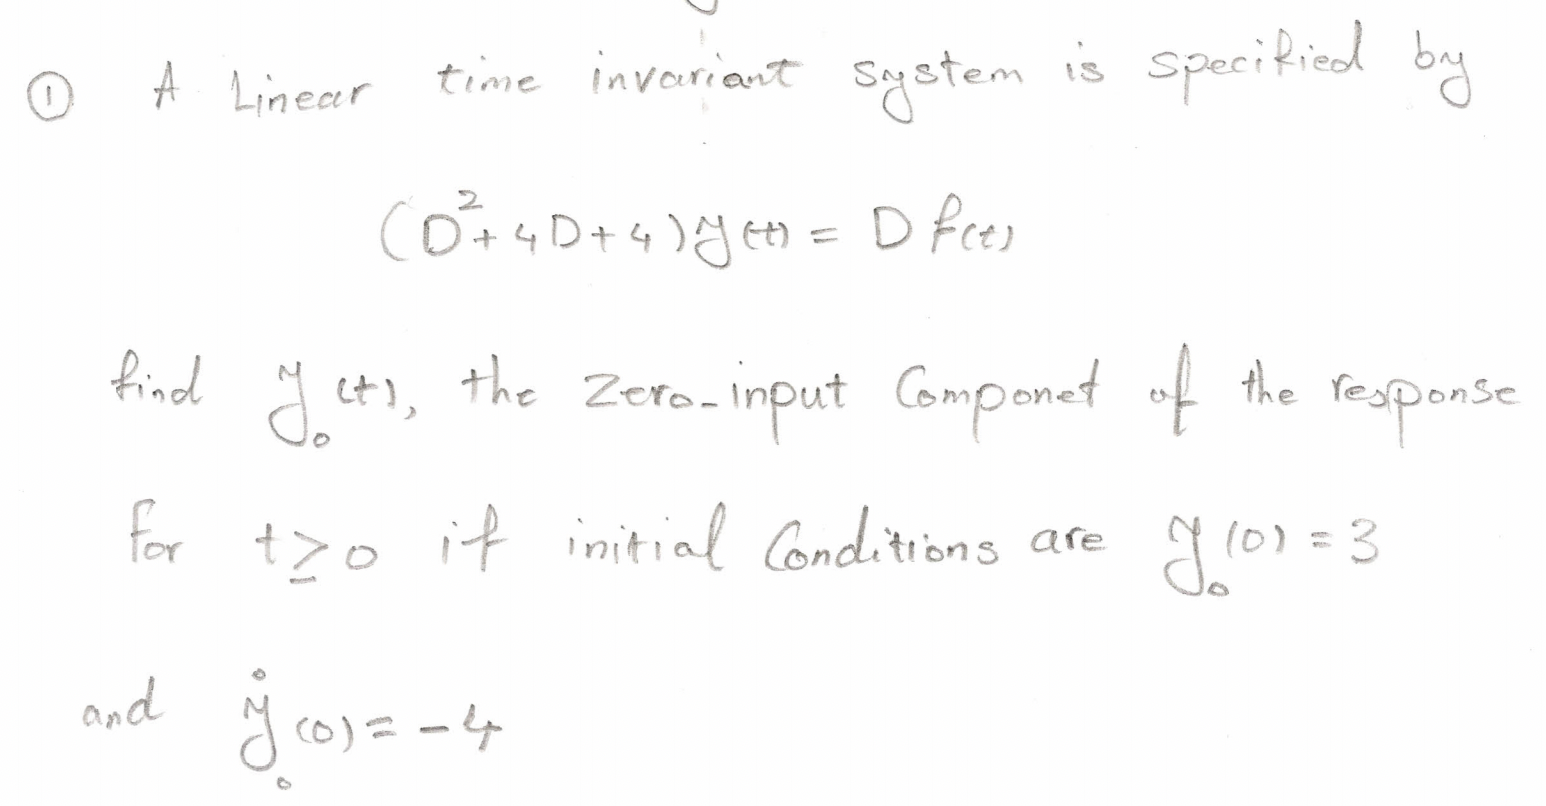 ① A Linear time invariant system is specified by
(D²+4D+4)y(t) = D f(t)
find y₀(t), the Zero-input Componet of the response
for t≥0 if initial Conditions are y₀(0) = 3
and ẏ₀(0) = -4